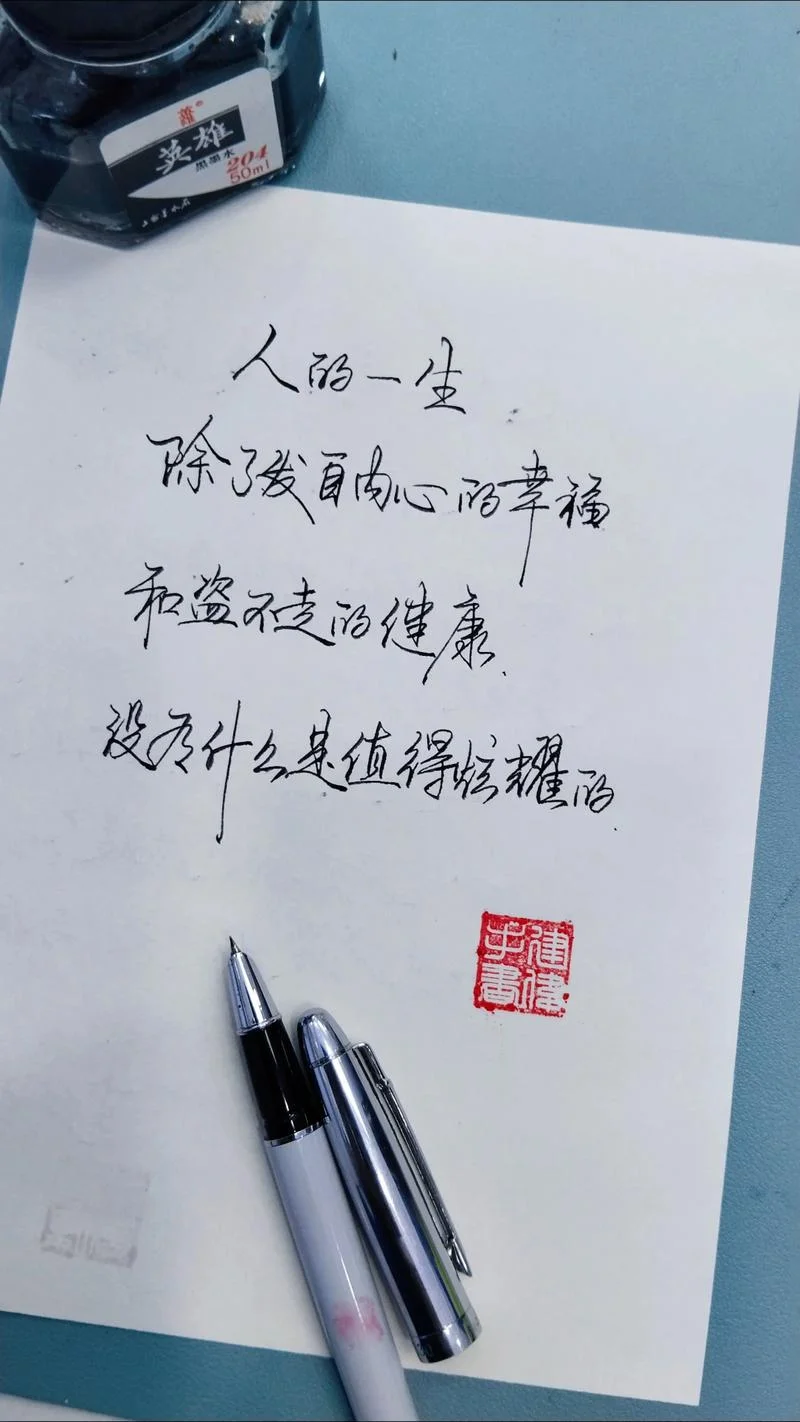 英雄
黑墨水
204
50ml
人的一生
除了发自内心的幸福
和盗不走的健康
没有什么是值得炫耀的
建健
手书